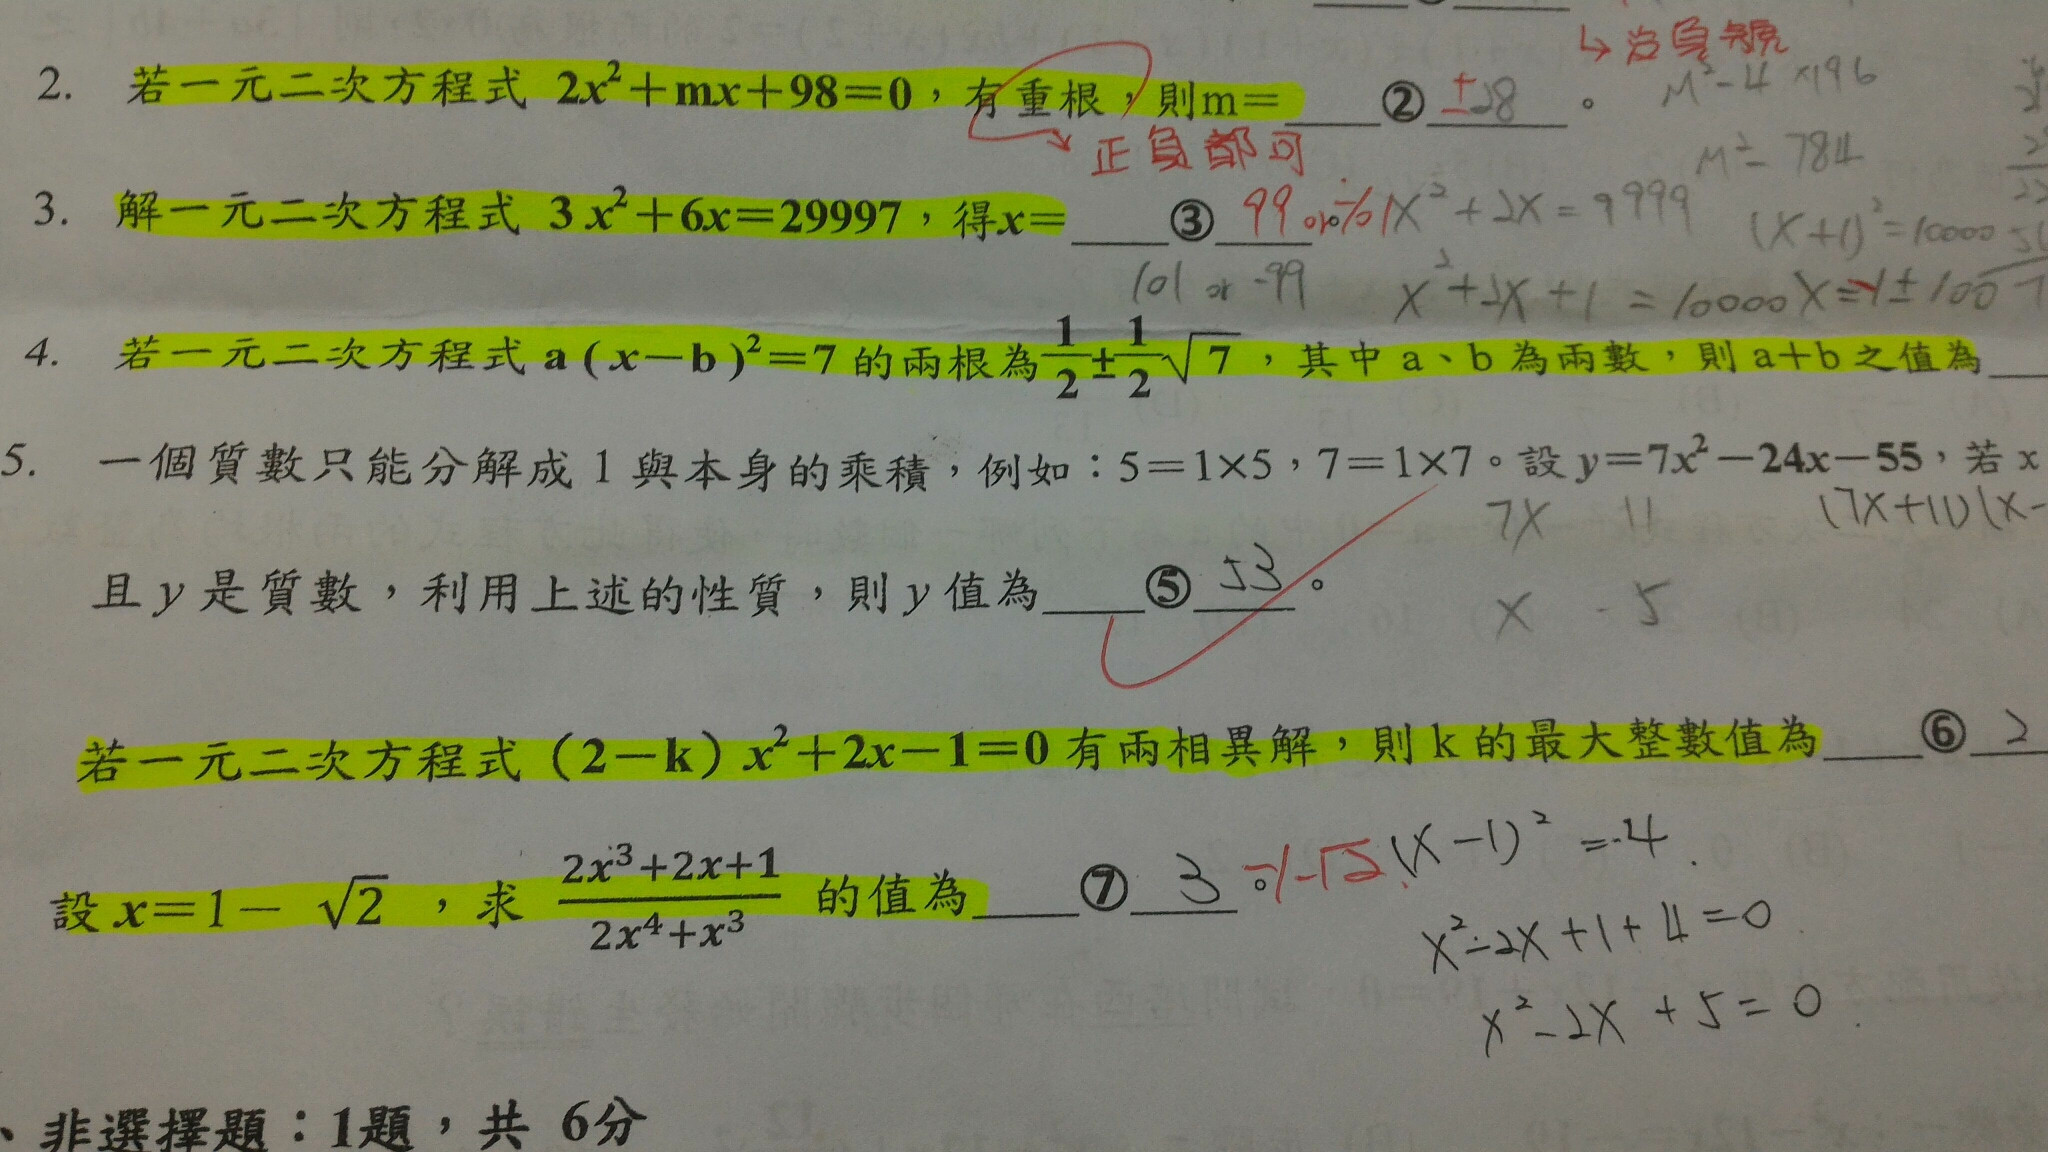 →為負號
2. 若一元二次方程式 2x²+mx+98=0，有重根，則m=____②±28。
m²-4×196
→正負都可
m²-784
3. 解一元二次方程式 3x²+6x=29997，得x=____③99 or
x²+2x=9999
(x+1)²=10000
101 or -99
x²+2x+1=10000
x=-1±100
4. 若一元二次方程式 a(x−b)²=7 的兩根為 1/2±1/2√7，其中 a、b 為兩數，則 a+b 之值為
5. 一個質數只能分解成 1 與本身的乘積，例如：5=1×5，7=1×7。設 y=7x²−24x−55，若 x
7x 11
(7x+11)(x-
且 y 是質數，利用上述的性質，則 y 值為____⑤53。
x -5
若一元二次方程式（2−k）x²+2x−1=0 有兩相異解，則 k 的最大整數值為____⑥2
設 x=1− √2 ，求 (2x³+2x+1)/(2x⁴+x³) 的值為____⑦3。-1-√2
(x-1)²=-4
x²-2x+1+4=0
x²-2x+5=0
、非選擇題：1題，共 6分